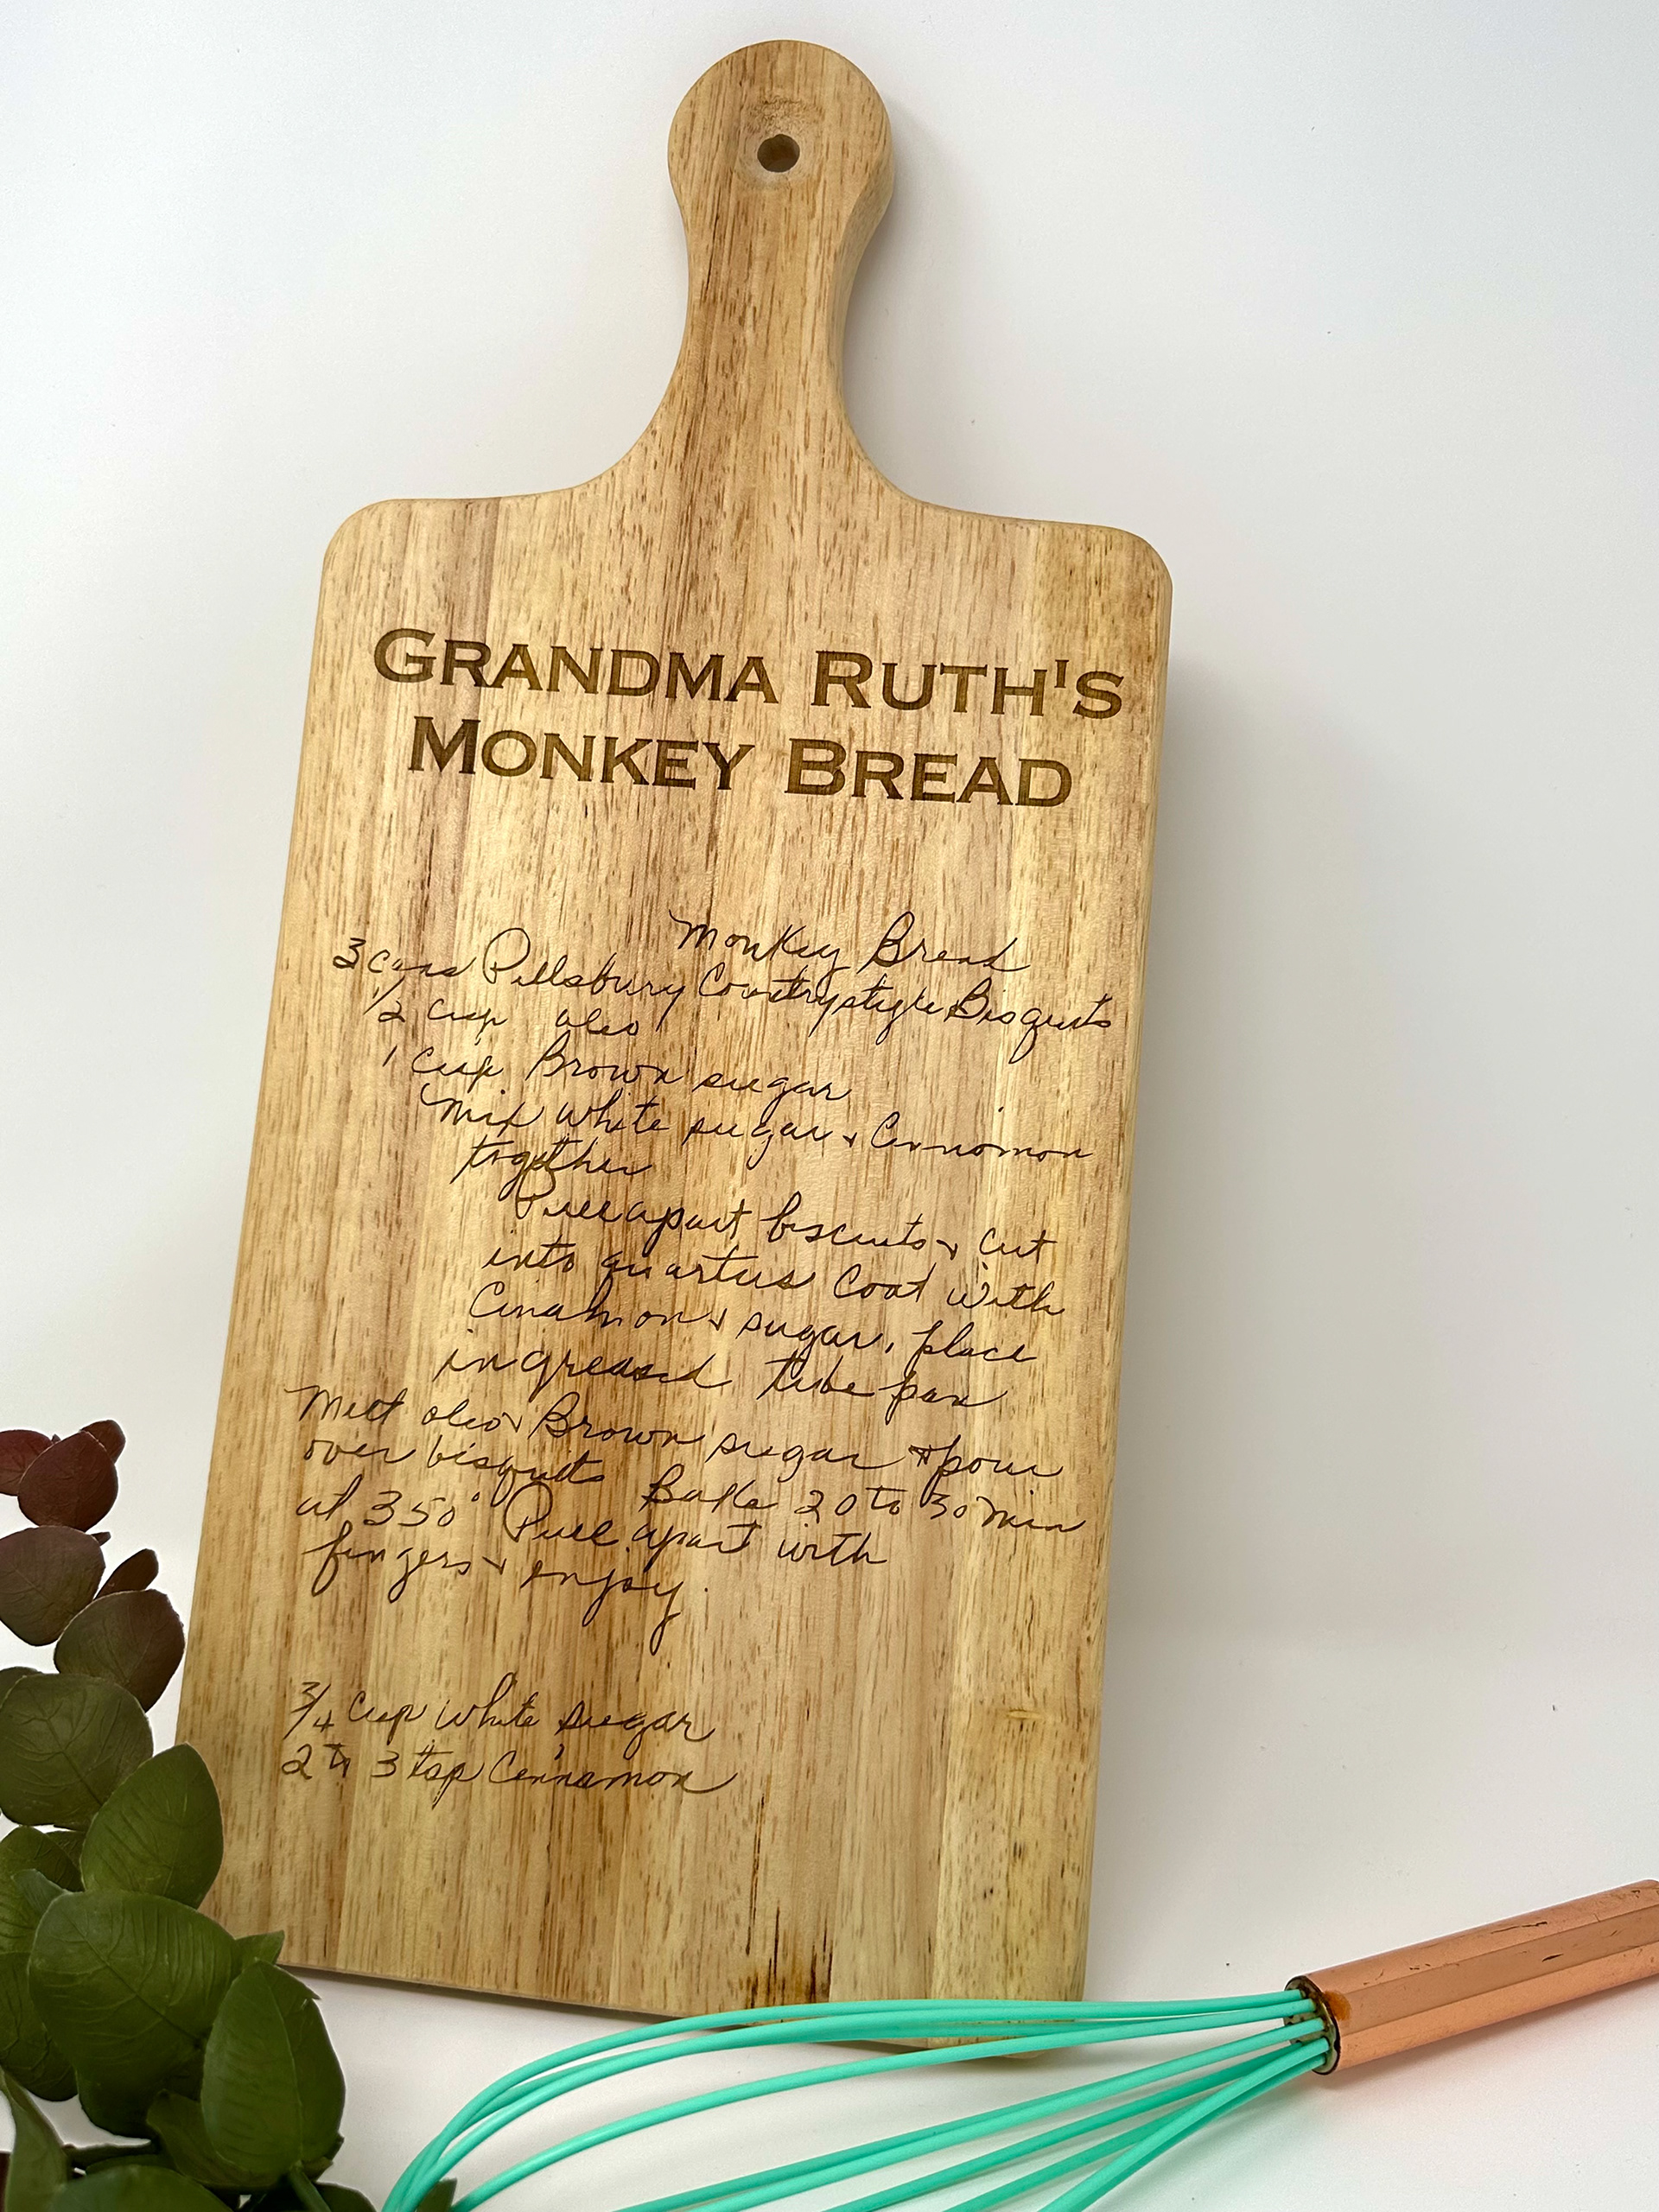 GRANDMA RUTH'S
MONKEY BREAD
Monkey Bread
3 cans Pillsbury Countrystyle Bisquits
1/2 cup oleo
1 cup Brown sugar
Mix white sugar & Cinnomon
together
Pull apart biscuits & cut
into quarters Coat with
Cinnamon & sugar, place
in greased tube pan
Melt oleo & Brown sugar & pour
over bisquits Bake 20 to 30 Min
at 350° Pull apart with
fingers & enjoy.
3/4 cup white sugar
2 to 3 tsp Cinnamon